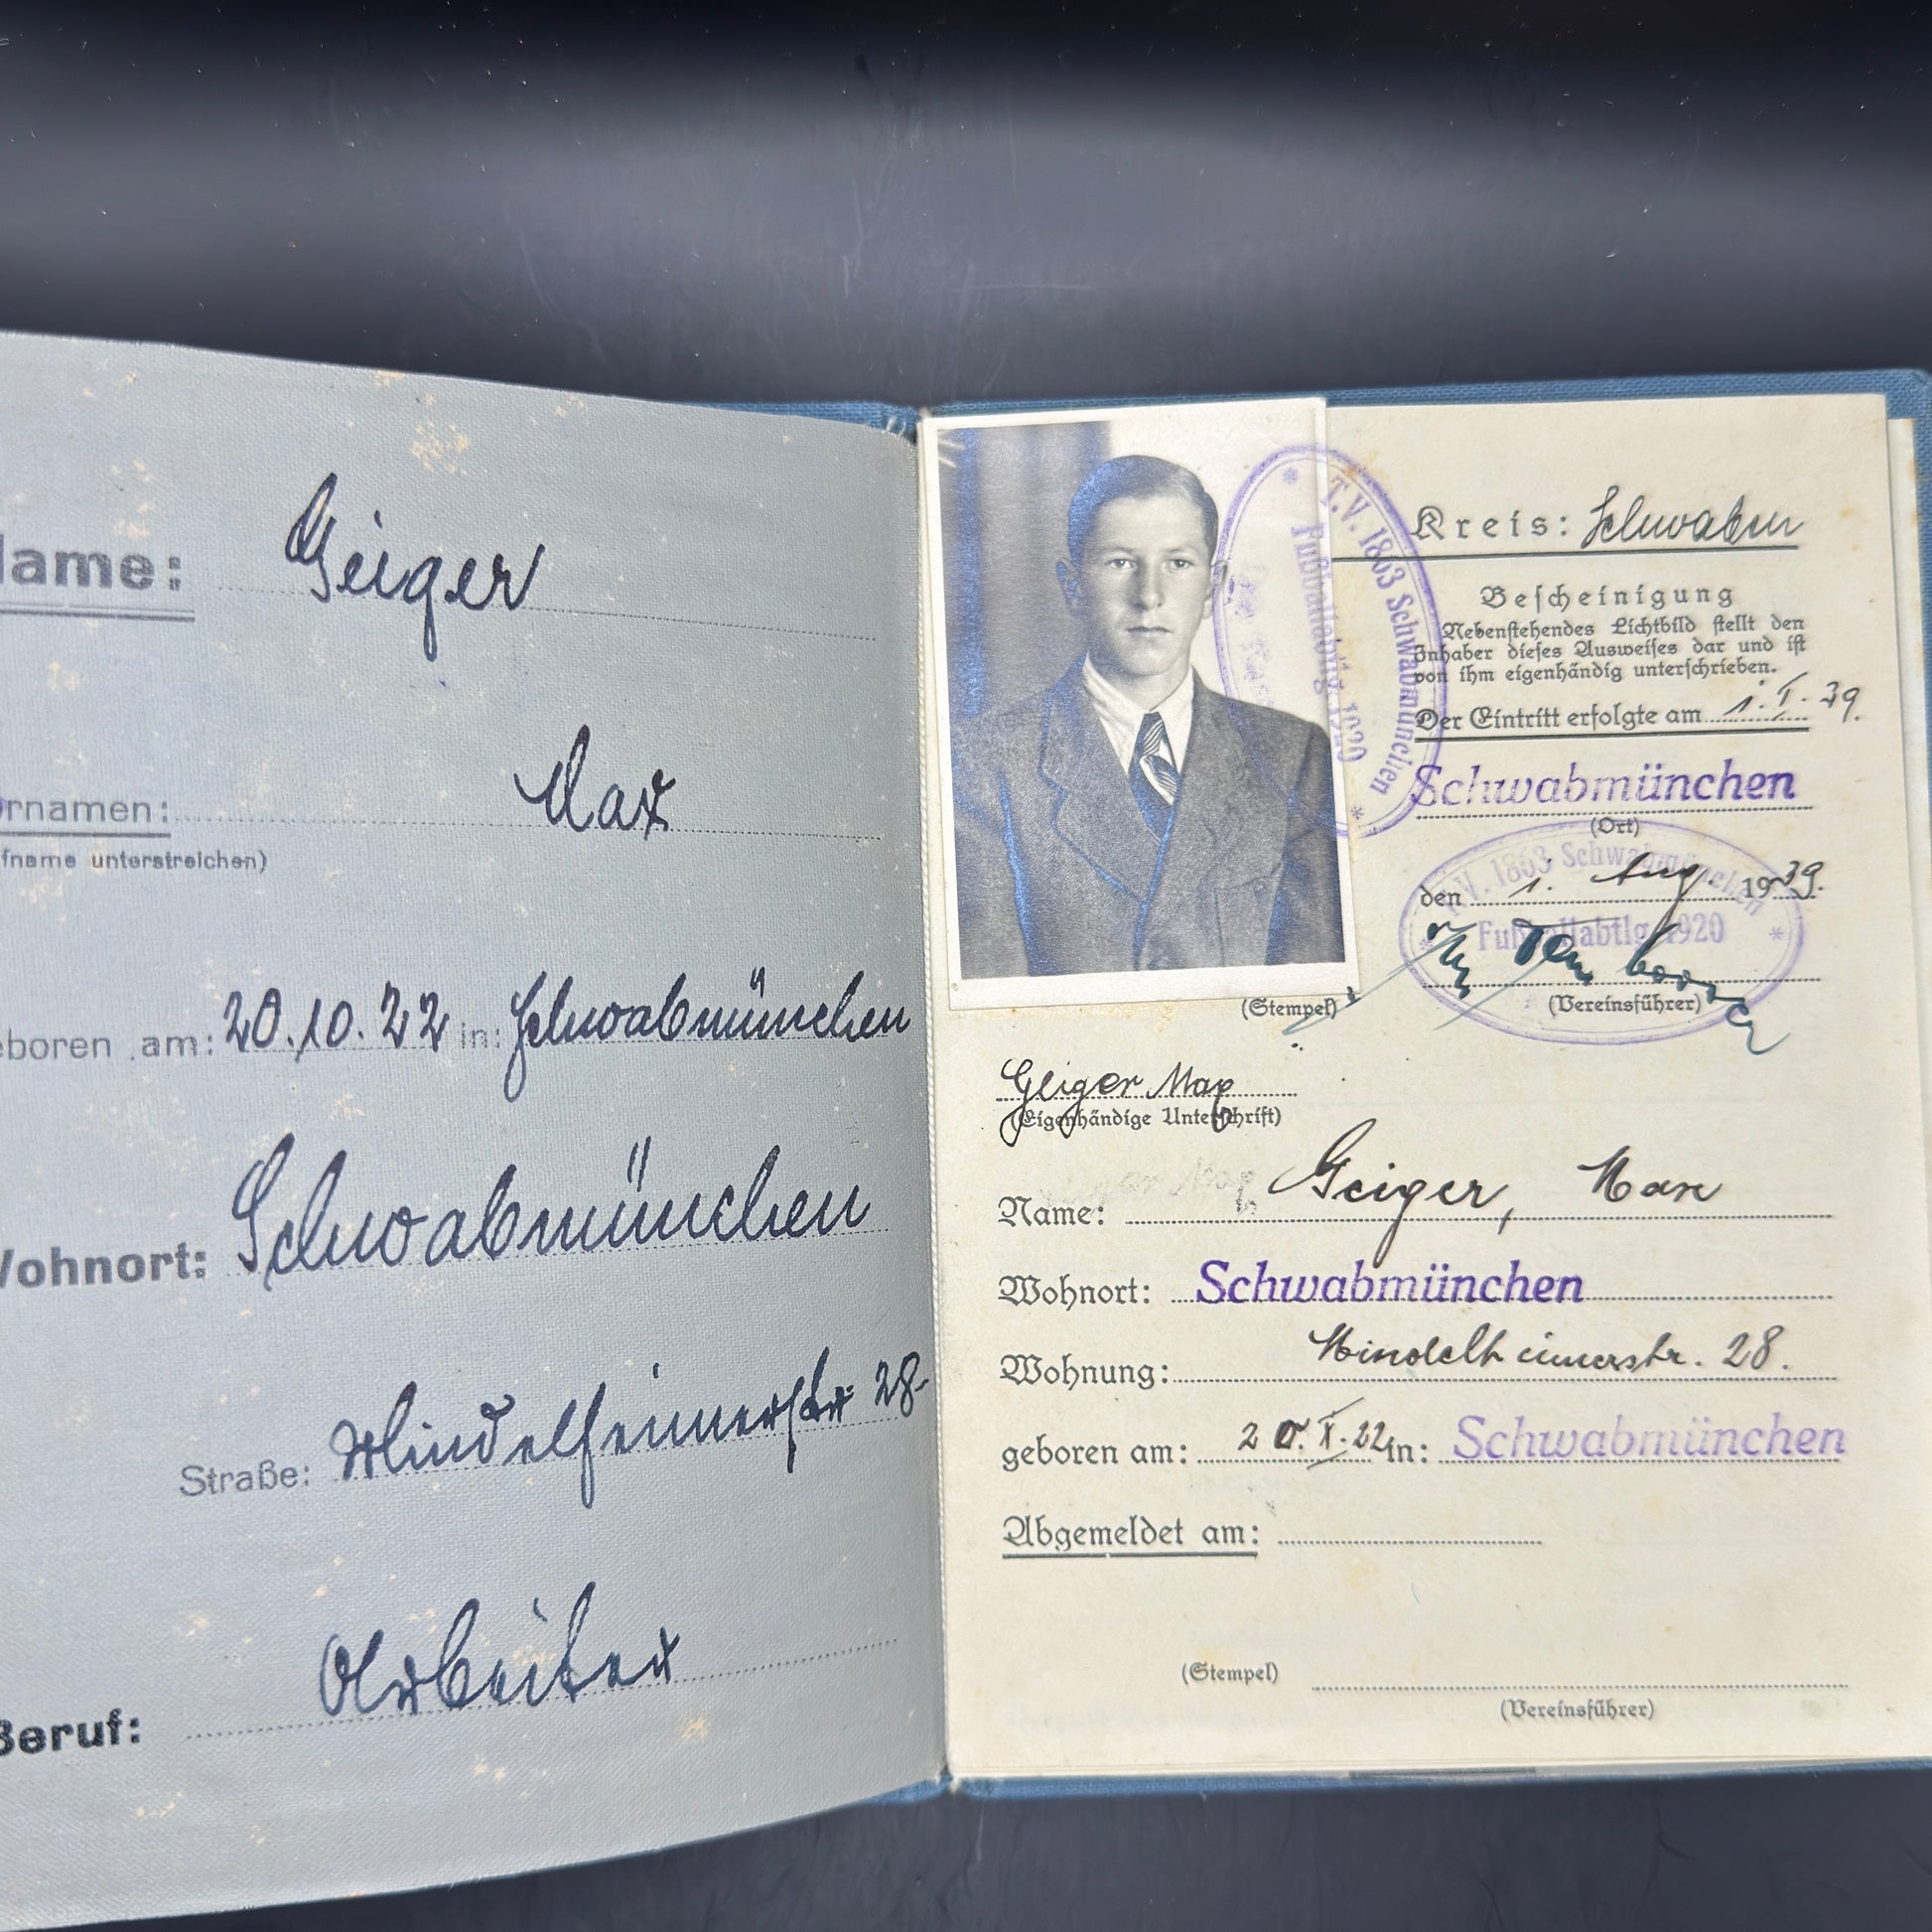 Name: Geiger
Vornamen: Max
(Rufname unterstreichen)
geboren am: 20.10.22 in: Schwabmünchen
Wohnort: Schwabmünchen
Straße: Mindelheimerstr 28
Beruf: Arbeiter
T.V. 1863 Schwabmünchen
Fußballabtlg. 1920
Kreis: Schwaben
Bescheinigung
Nebenstehendes Lichtbild stellt den
Inhaber dieses Ausweises dar und ist
von ihm eigenhändig unterschrieben.
Der Eintritt erfolgte am 1. I. 39.
Schwabmünchen
(Ort)
T.V. 1863 Schwabmünchen
Fußballabtlg. 1920
den 1. Aug. 1939.
(Stempel)
(Vereinsführer)
Geiger Max
(Eigenhändige Unterschrift)
Name: Geiger, Max
Wohnort: Schwabmünchen
Wohnung: Mindelheimerstr. 28.
geboren am: 20. X. 22 in: Schwabmünchen
Abgemeldet am:
(Stempel)
(Vereinsführer)